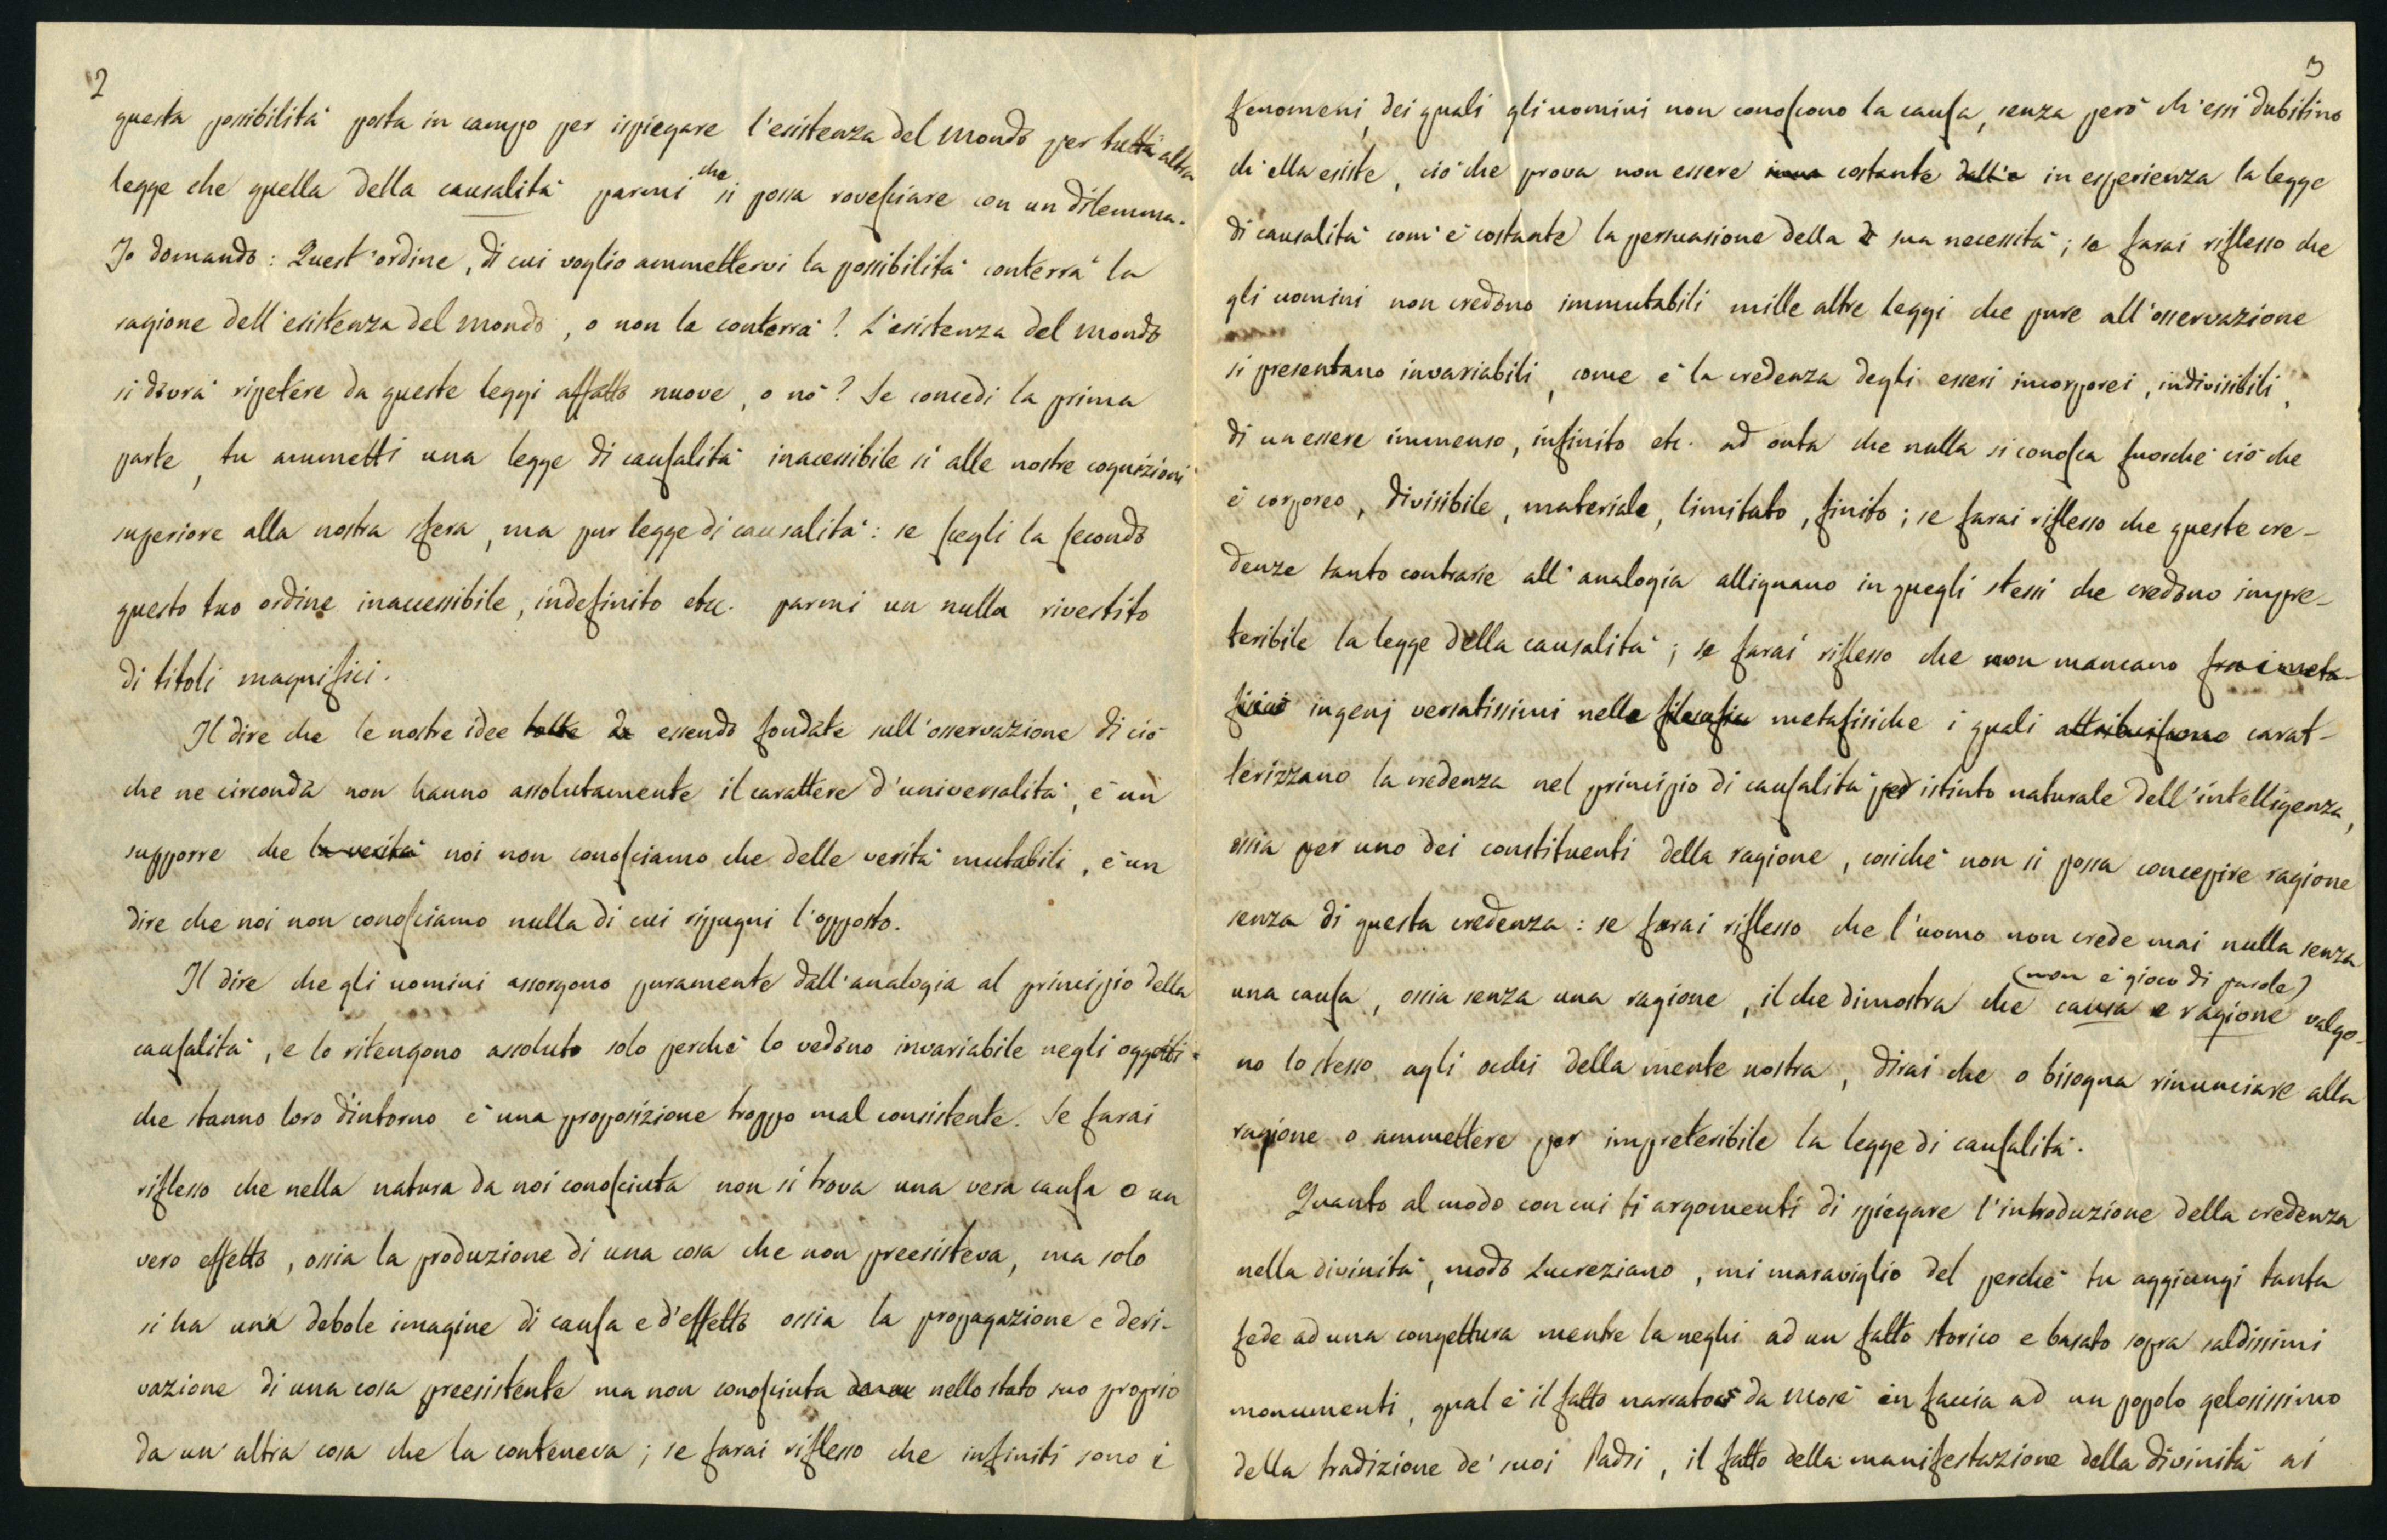 2
questa possibilità posta in campo per ispiegare l'esistenza del mondo per tutt'altra
legge che quella della causalità parmi che si possa rovesciare con un dilemma.
Io domando: Quest'ordine, di cui voglio ammettervi la possibilità conterrà la
ragione dell'esistenza del mondo, o non la conterrà? L'esistenza del mondo
si dovrà ripetere da queste leggi affatto nuove, o nò? Se concedi la prima
parte, tu ammetti una legge di causalità inacessibile sì alle nostre cognizioni
superiore alla nostra sfera, ma pur legge di causalità: se scegli la secondo
questo tuo ordine inaccessibile, indefinito etc. parmi un nulla rivestito
di titoli magnifici.
Il dire che le nostre idee tolte da essendo fondate sull'osservazione di ciò
che ne circonda non hanno assolutamente il carattere d'universalità, è un
supporre che la verità noi non conosciamo che delle verità mutabili, è un
dire che noi non conosciamo nulla di cui ripugni l'opposto.
Il dire che gli uomini assorgono puramente dall'analogia al principio della
causalità, e lo ritengono assoluto solo perchè lo vedono invariabile negli oggetti
che stanno loro d'intorno è una proposizione troppo mal consistente. Se farai
riflesso che nella natura da noi conosciuta non si trova una vera causa o un
vero effetto, ossia la produzione di una cosa che non preesisteva, ma solo
si ha una debole imagine di causa e d'effetto ossia la propagazione e deri-
vazione di una cosa preesistente ma non conosciuta nello stato suo proprio
da un'altra cosa che la conteneva; se farai riflesso che infiniti sono i
3
fenomeni, dei quali gli uomini non conoscono la causa, senza però ch'essi dubitino
ch'ella esiste, ciò che prova non essere costante dall'e in esperienza la legge
di causalità com'è costante la persuasione della sua necessità; se farai riflesso che
gli uomini non credono immutabili mille altre leggi che pure all'osservazione
si presentano invariabili, come è la credenza degli esseri incorporei, indivisibili,
di un essere immenso, infinito etc. ad onta che nulla si conosca fuorchè ciò che
è corporeo, divisibile, materiale, limitato, finito; se farai riflesso che queste cre-
denze tanto contrarie all'analogia allignano in quegli stessi che credono impre-
teribile la legge della causalità; se farai riflesso che non mancano fra i meta-
fisici ingenj versatissimi nelle filosofia metafisiche i quali attribuiscono carat-
terizzano la credenza nel principio di causalità per istinto naturale dell'intelligenza,
ossia per uno dei constituenti della ragione, cosichè non si possa concepire ragione
senza di questa credenza: se farai riflesso che l'uomo non crede mai nulla senza
una causa, ossia senza una ragione, il che dimostra che causa e ragione (non è gioco di parole) valgo-
no lo stesso agli occhi della mente nostra, dirai che o bisogna rinunciare alla
ragione o ammettere per impreteribile la legge di causalità.
Quanto al modo con cui ti argomenti di spiegare l'introduzione della credenza
nella divinità, modo Lucreziano, mi maraviglio del perchè tu aggiungi tanta
fede ad una congettura mentre la neghi ad un fatto storico e basato sopra saldissimi
monumenti, qual è il fatto narrato da Mosè in faccia ad un popolo gelosissimo
della tradizione de' suoi Padri, il fatto della manifestazione della divinità ai